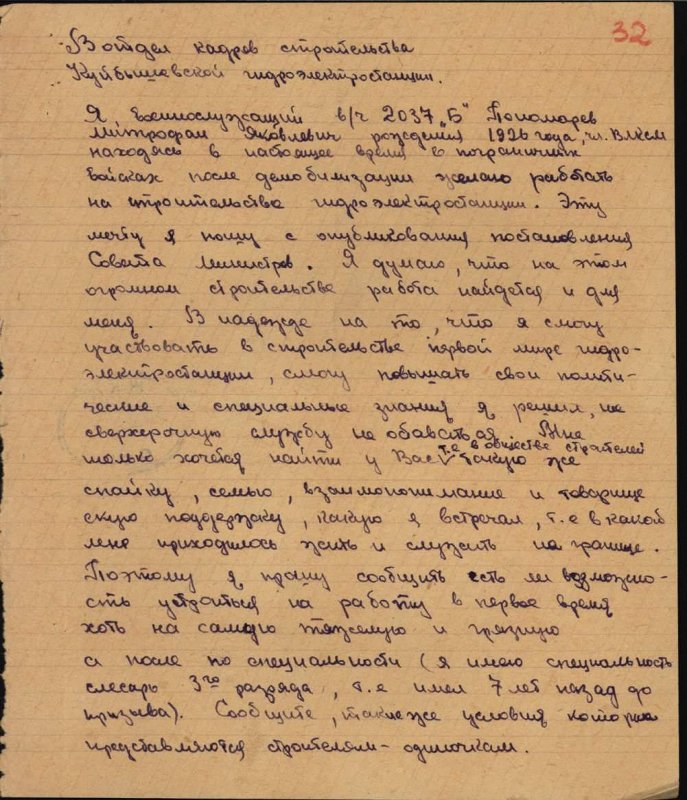 32
В отдел кадров строительства
Куйбышевской гидроэлектростанции.
Я, военнослужащий в/ч 2037 „Б" Пономарев
Митрофан Яковлевич рождения 1926 года, чл. ВЛКСМ
находясь в настоящее время в пограничных
войсках после демобилизации желаю работать
на строительстве гидроэлектростанции. Эту
мечту я ношу с опубликования постановления
Совета Министров. Я думаю, что на этом
огромном строительстве работа найдется и для
меня. В надежде на то, что я смогу
участвовать в строительстве первой мире гидро-
электростанции, смогу повышать свои полити-
ческие и специальные знания я решил, на
сверхсрочную службу не оставаться. Мне
т.е в обществе строителей
только хочется найти у Вас такую же
спайку, семью, взаимопонимание и товарище
скую поддержку, какую я встречал, т.е в какой
мне приходилось жить и служить на границе.
Поэтому я прошу сообщить есть ли возможно-
сть устроиться на работу в первое время
хоть на самую тяжелую и грязную
а после по специальности (я имею специальность
слесарь 3го разряда, т.е имел 7 лет назад до
призыва). Сообщите, также условия которые
представляются строителям-одиночкам.